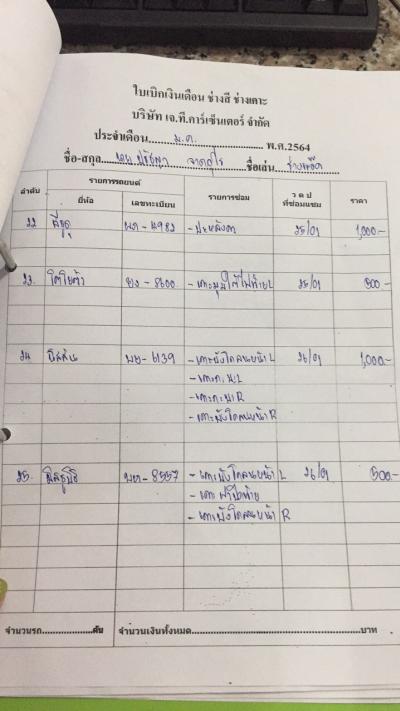 ใบเบิกเงินเดือน ช่างสี ช่างเคาะ
บริษัท เจ.ที.คาร์เซ็นเตอร์ จำกัด
ประจำเดือน ม.ค. พ.ศ.2564
ชื่อ-สกุล ชื่อเล่น
ลำดับ รายการรถยนต์ รายการซ่อม ว ด ป ที่ซ่อมนซม ราคา
ยี่ห้อ เลขทะเบียน
22 อีซูซุ - 4982 25/01 1,000.-
23. โตโยต้า - 8600 - เคาะมุมใต้ไฟท้าย L 25/01 500.-
24 นิสสัน - 6139 - เคาะบังโคลนหน้า L 26/01 1,000.-
- เคาะ L
- เคาะ R
- เคาะบังโคลนหน้า R
25. มิตซูบิชิ - 8557 - เคาะบังโคลนหน้า L 26/01 500.-
- เคาะฝาปิดท้าย
- เคาะบังโคลนหน้า R
จำนวนรถ....................คัน จำนวนเงินทั้งหมด....................บาท